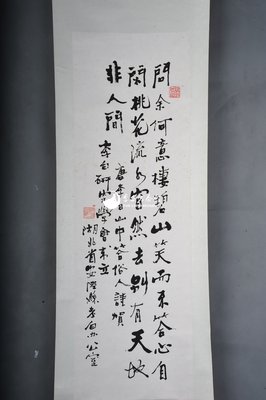 問余何意棲碧山笑而不答心自
閑桃花流水窅然去別有天地
非人間
唐李白山中答俗人 謹賀
李白研究學會成立
湖北省安陸縣李白辦公室